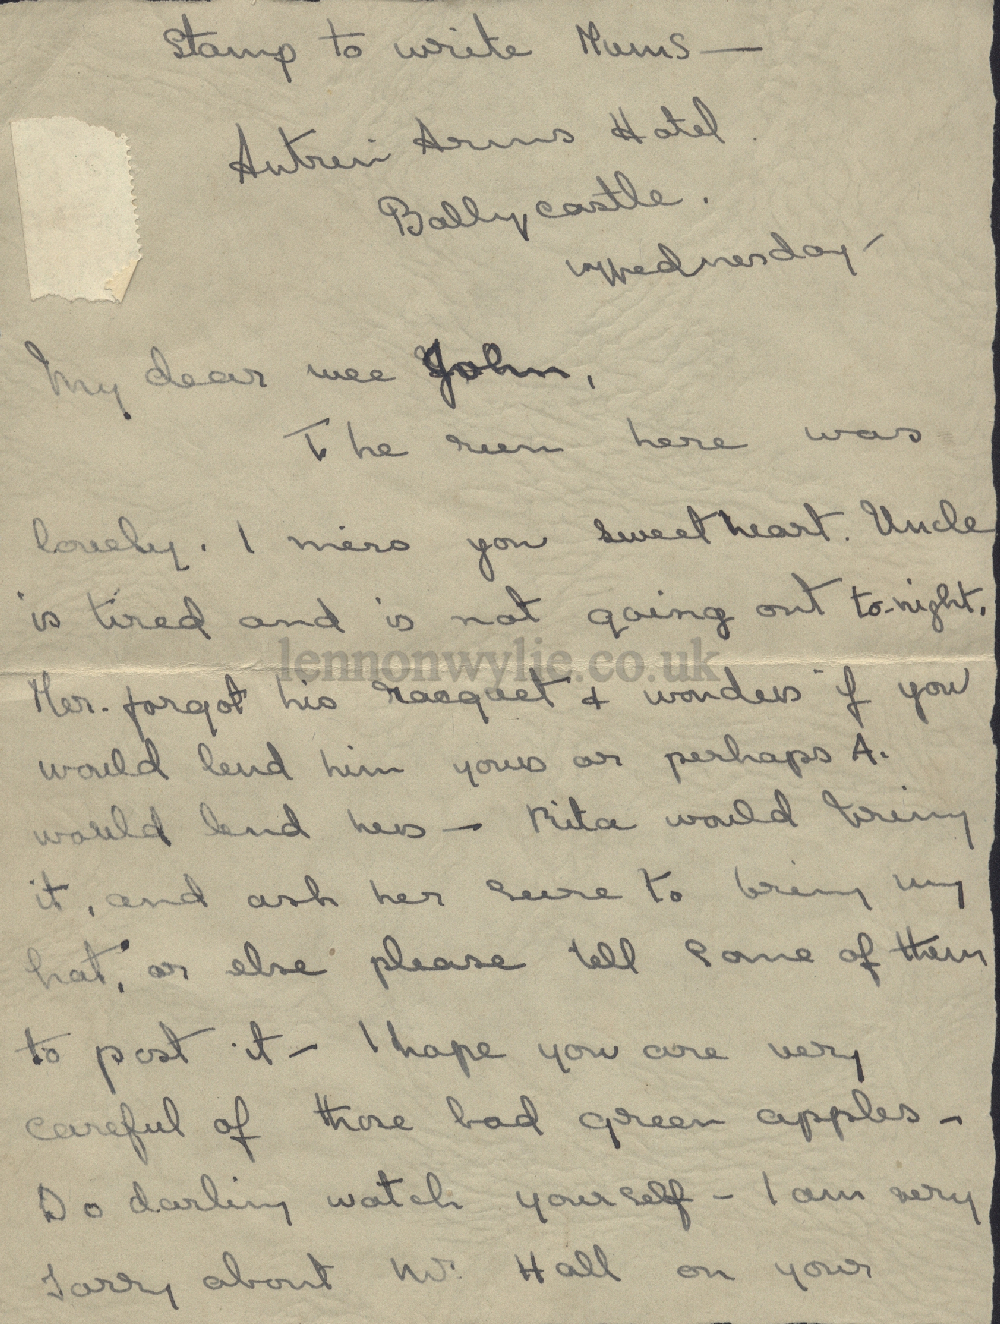 Stamp to write Mums —
Antrim Arms Hotel
Ballycastle.
Wednesday
My dear wee John,
The run here was
lovely. I miss you sweetheart. Uncle
is tired and is not going out to-night.
Her. forgot his racquet & wonders if you
would lend him yours or perhaps A.
would lend hers — Rita would bring
it, and ask her sure to bring my
hat, or else please tell some of them
to post it — I hope you are very
careful of those bad green apples —
Do darling watch yourself — I am very
sorry about Mr. Hall on your
lennonwylie.co.uk